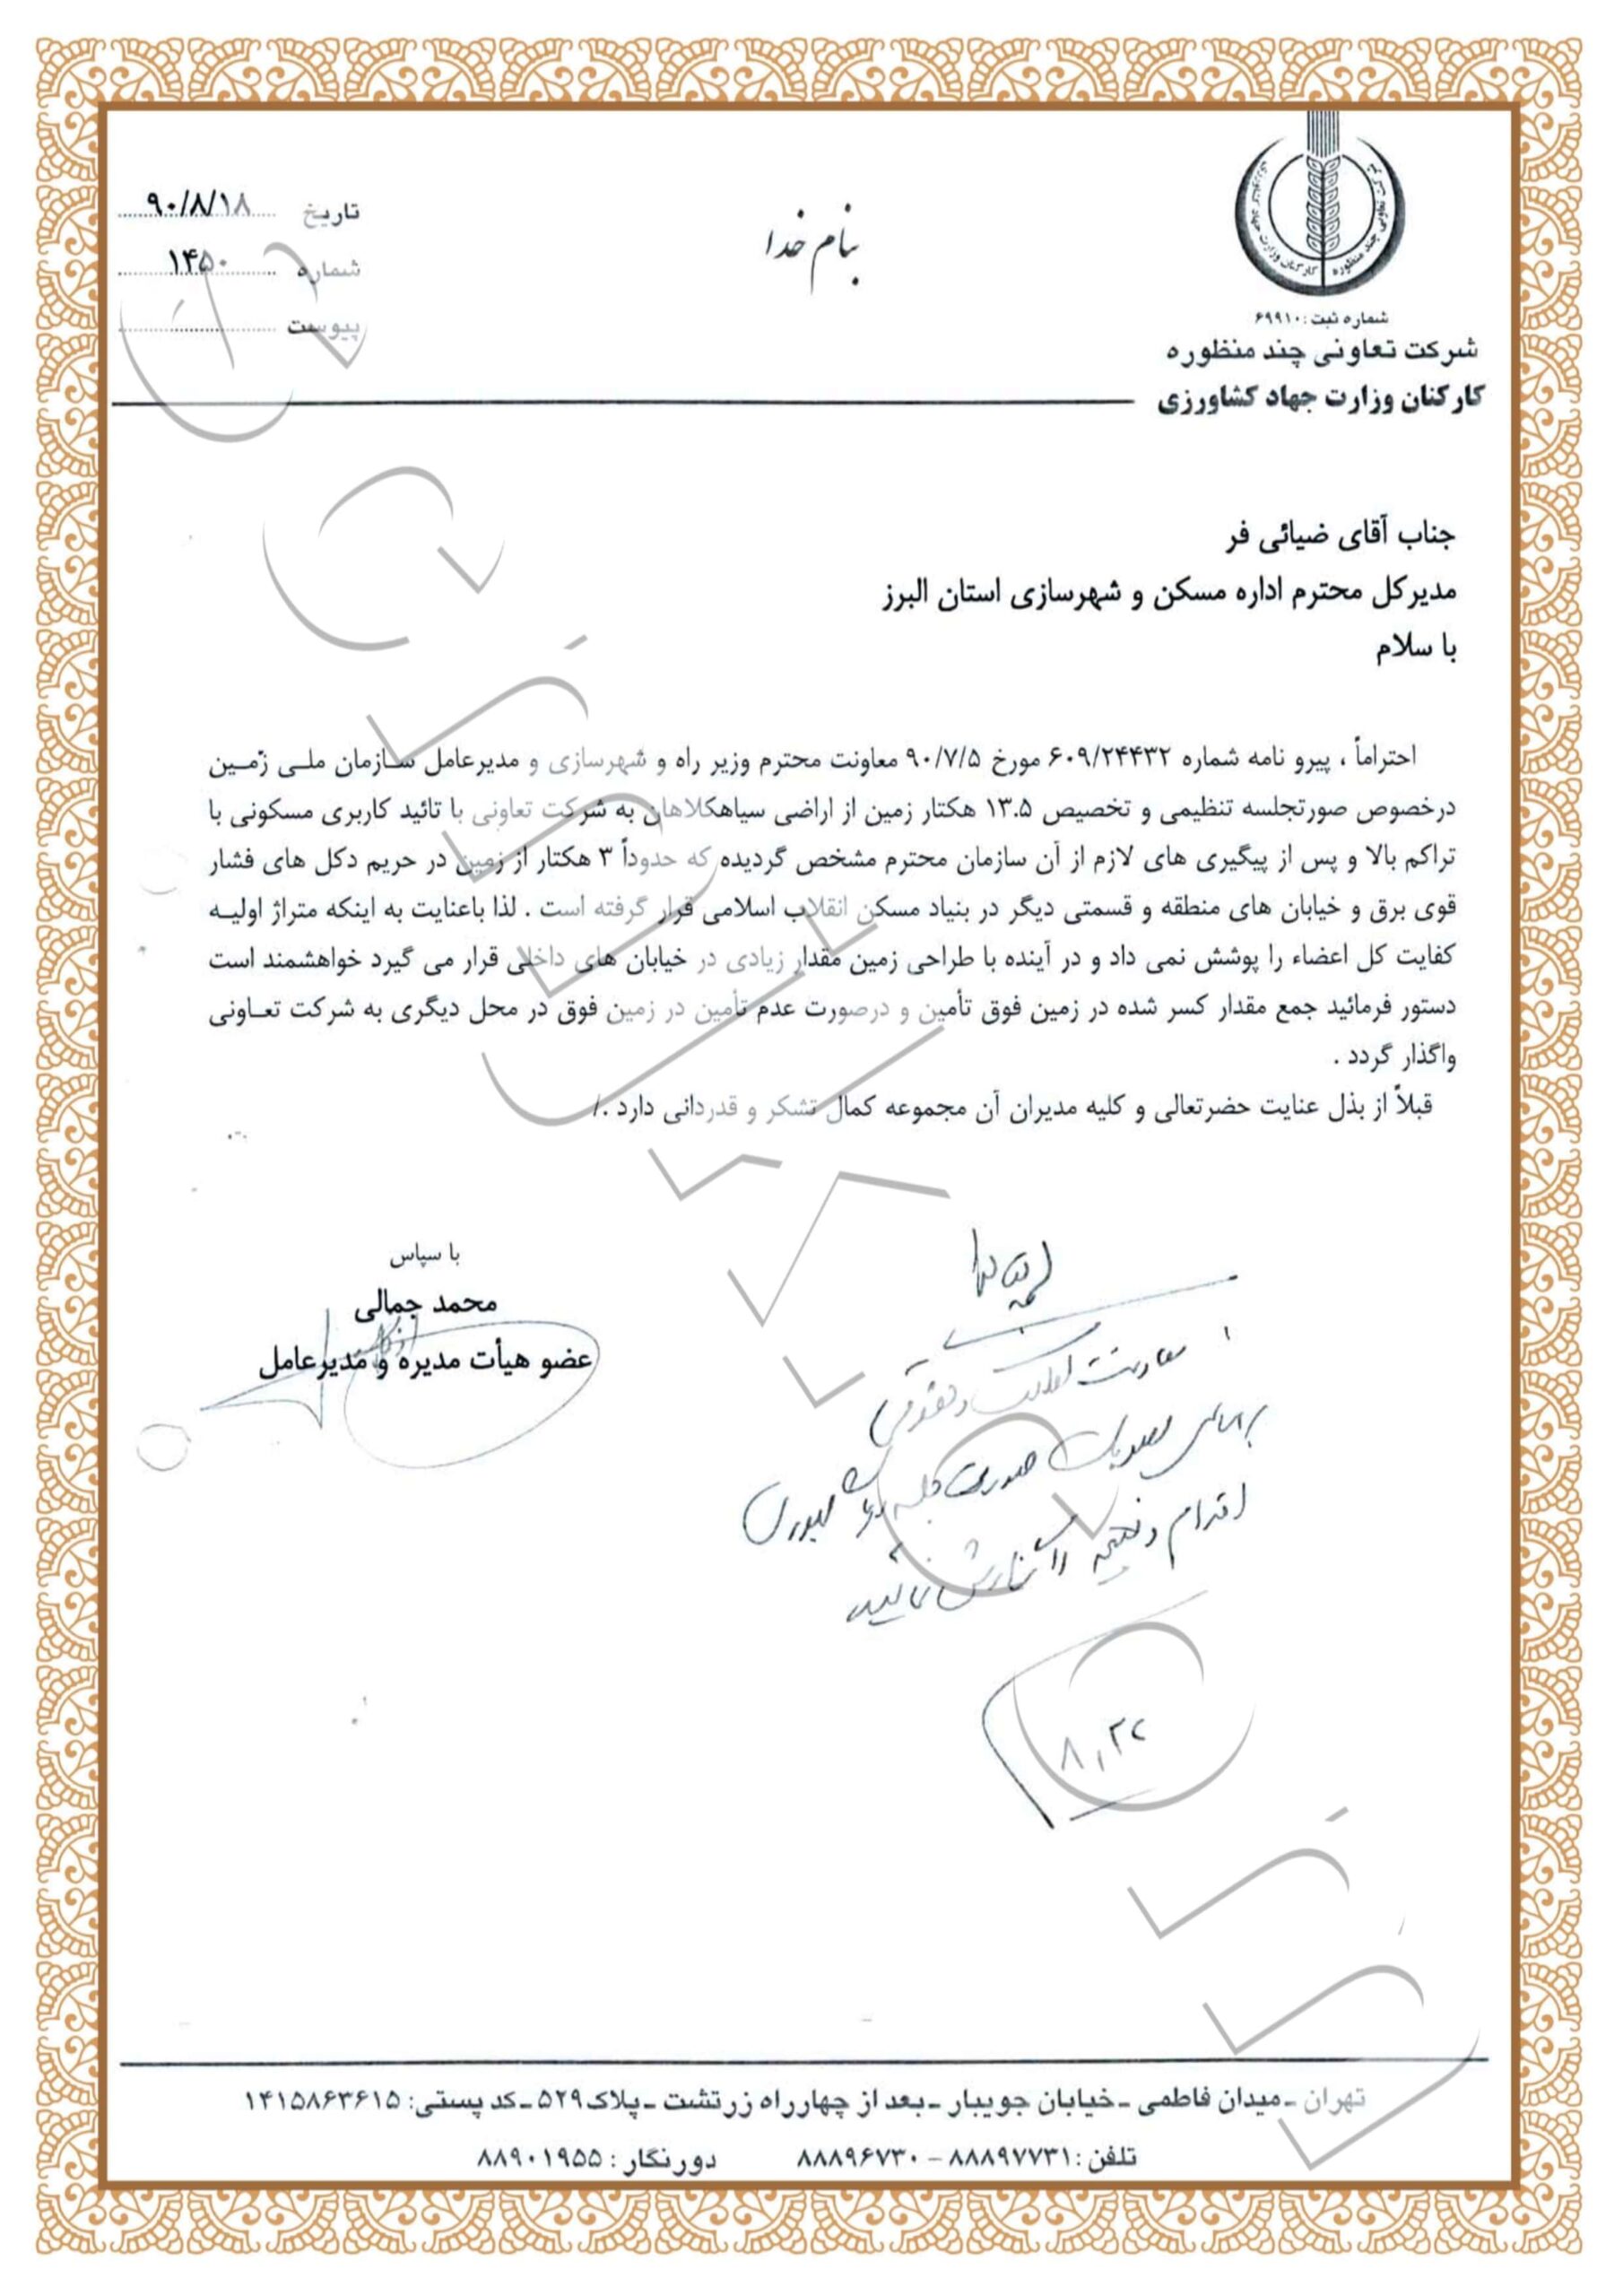 بنام خدا
تاریخ ۹۰/۸/۱۸
شماره ۱۴۵۰
پیوست
شرکت تعاونی چند منظوره
کارکنان وزارت جهاد کشاورزی
شماره ثبت: ۶۹۹۱۰
شرکت تعاونی چند منظوره
کارکنان وزارت جهاد کشاورزی
جناب آقای ضیائی فر
مدیرکل محترم اداره مسکن و شهرسازی استان البرز
با سلام
احتراماً ، پیرو نامه شماره ۶۰۹/۲۴۴۳۲ مورخ ۹۰/۷/۵ معاونت محترم وزیر راه و شهرسازی و مدیرعامل سازمان ملی زمین
درخصوص صورتجلسه تنظیمی و تخصیص ۱۳.۵ هکتار زمین از اراضی سیاهکلاهان به شرکت تعاونی با تائید کاربری مسکونی با
تراکم بالا و پس از پیگیری های لازم از آن سازمان محترم مشخص گردیده که حدوداً ۳ هکتار از زمین در حریم دکل های فشار
قوی برق و خیابان های منطقه و قسمتی دیگر در بنیاد مسکن انقلاب اسلامی قرار گرفته است . لذا باعنایت به اینکه متراژ اولیه
کفایت کل اعضاء را پوشش نمی داد و در آینده با طراحی زمین مقدار زیادی در خیابان های داخلی قرار می گیرد خواهشمند است
دستور فرمائید جمع مقدار کسر شده در زمین فوق تأمین و درصورت عدم تأمین در زمین فوق در محل دیگری به شرکت تعاونی
واگذار گردد .
قبلاً از بذل عنایت حضرتعالی و کلیه مدیران آن مجموعه کمال تشکر و قدردانی دارد ./
با سپاس
محمد جمالی
عضو هیأت مدیره و مدیرعامل
معاونت املاک و حقوقی
براساس مصوبات صورت جلسه
اقدام و نتیجه را گزارش نمائید
تهران ـ میدان فاطمی ـ خیابان جویبار ـ بعد از چهارراه زرتشت ـ پلاک ۵۲۹ ـ کد پستی: ۱۴۱۵۸۶۳۶۱۵
تلفن: ۸۸۸۹۷۷۳۱ – ۸۸۸۹۶۷۳۰ دورنگار : ۸۸۹۰۱۹۵۵